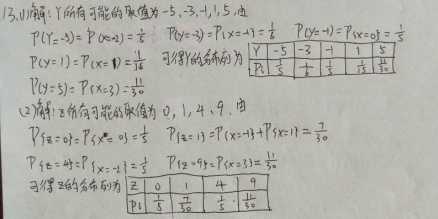 13.(1)解:Y所有可能的取值为-5,-3,-1,1,5,由
P(Y=-5)=P(x=-2)=1/5 P(Y=-3)=P(x=-1)=1/6 P(Y=-1)=P{x=0}=1/5
P(Y=1)=P(x=1)=1/15 可得Y的分布列为 Y -5 -3 -1 1 5
P(Y=5)=P(x=3)=11/30 Pi 1/5 1/6 1/5 1/15 11/30
(2)解:Z所有可能的取值为0,1,4,9.由
P{z=0}=P{x=0}=1/5 P{z=1}=P{x=-1}+P{x=1}=7/30
P{z=4}=P{x=-2}=1/5 P{z=9}=P{x=3}=11/30
可得Z的分布列为 Z 0 1 4 9
Pi 1/5 7/30 1/5 11/30